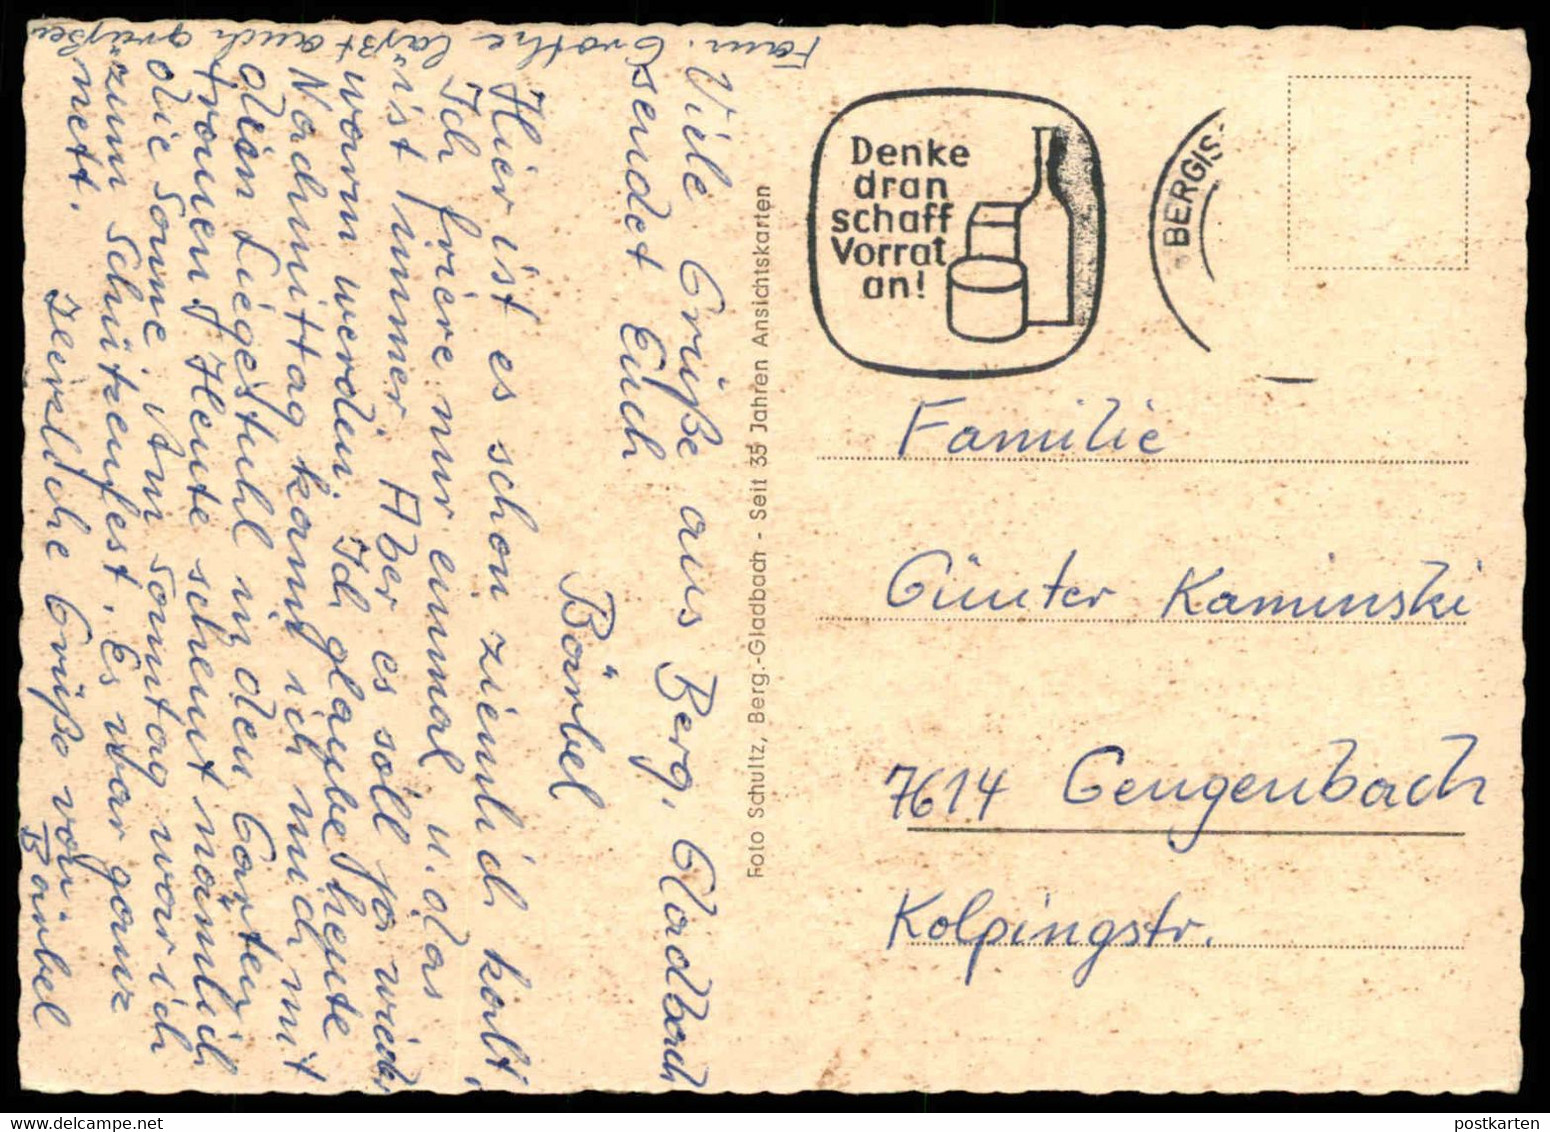 Viele Grüße aus Berg. Gladbach
sendet Euch
Bärbel
Hier ist es schon ziemlich kalt,
Ich friere nur einmal, u. das
ist immer. Aber es soll ja wieder
warm werden. Ich glaube heute
Nachmittag kann ich mich mit
dem Liegestuhl in den Garten
trauen. Heute scheint nämlich
die Sonne. Am Sonntag war ich
zum Schützenfest. Es war ganz
nett.
Herzliche Grüße von
Bärbel
Fam. Grothe läßt auch grüßen
Foto Schultz, Berg.-Gladbach - Seit 35 Jahren Ansichtskarten
Denke
dran
schaff
Vorrat
an!
BERGIS
Familie
Günter Kaminski
7614 Gengenbach
Kolpingstr.
postkarten